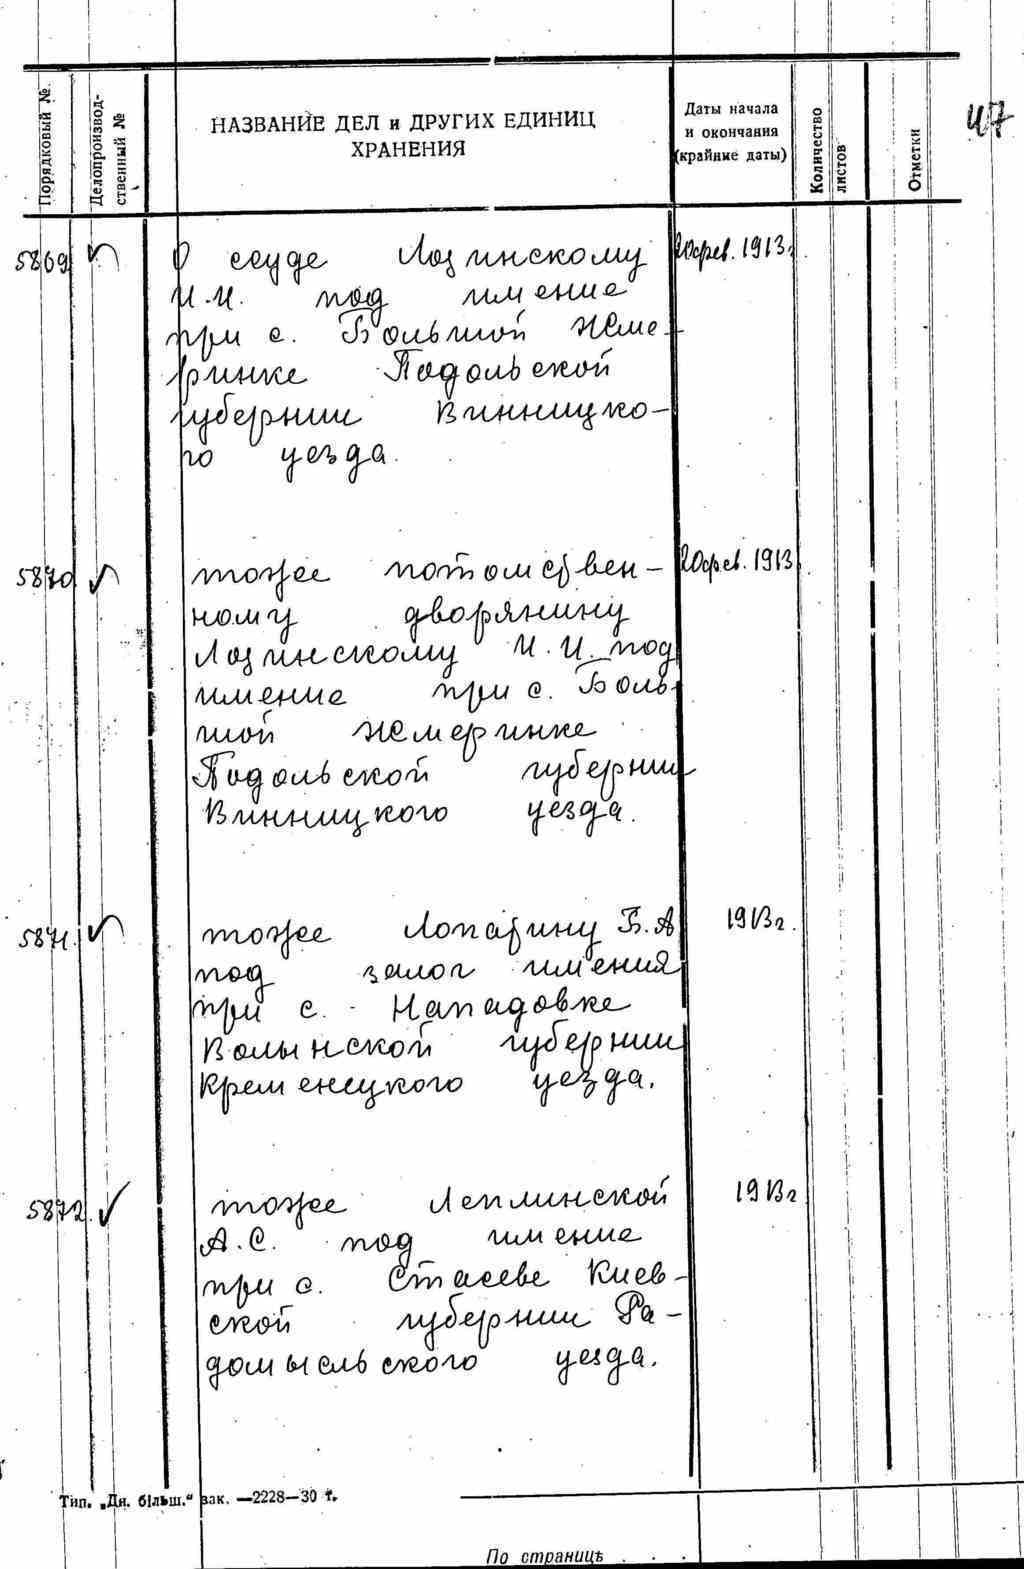 47
Порядковый №.
Делопроизвод-
ственный №
НАЗВАНИЕ ДЕЛ и ДРУГИХ ЕДИНИЦ
ХРАНЕНИЯ
Даты начала
и окончания
(крайние даты)
Количество
листов
Отметки
5869 О ссуде Лозинскому 20фев. 1913г
И.И. под имение
при с. Большой Жме-
ринке Подольской
губернии Винницко-
го уезда.
5870 тоже потомствен- 20фев. 1913
ному дворянину
Лозинскому И.И. под
имение при с. Боль-
шой Жмеринке
Подольской губернии
Винницкого уезда.
5871. тоже Лопатину Б.А 1913г.
под залог имения
при с. Нападовке
Волынской губернии
Кременецкого уезда.
5872. тоже Леплинской 1913г
А.С. под имение
при с. Стасеве Киев-
ской губернии Ра-
домысльского уезда.
Тип. „Дн. більш." зак. —2228—30 г.
По страницѣ . . .